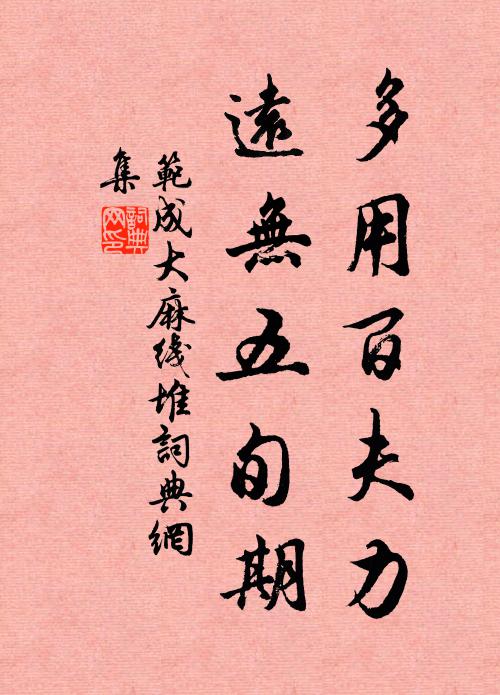 多用百夫力
遠無五旬期
範成大麻线堆詞典網
集
詞典
网印